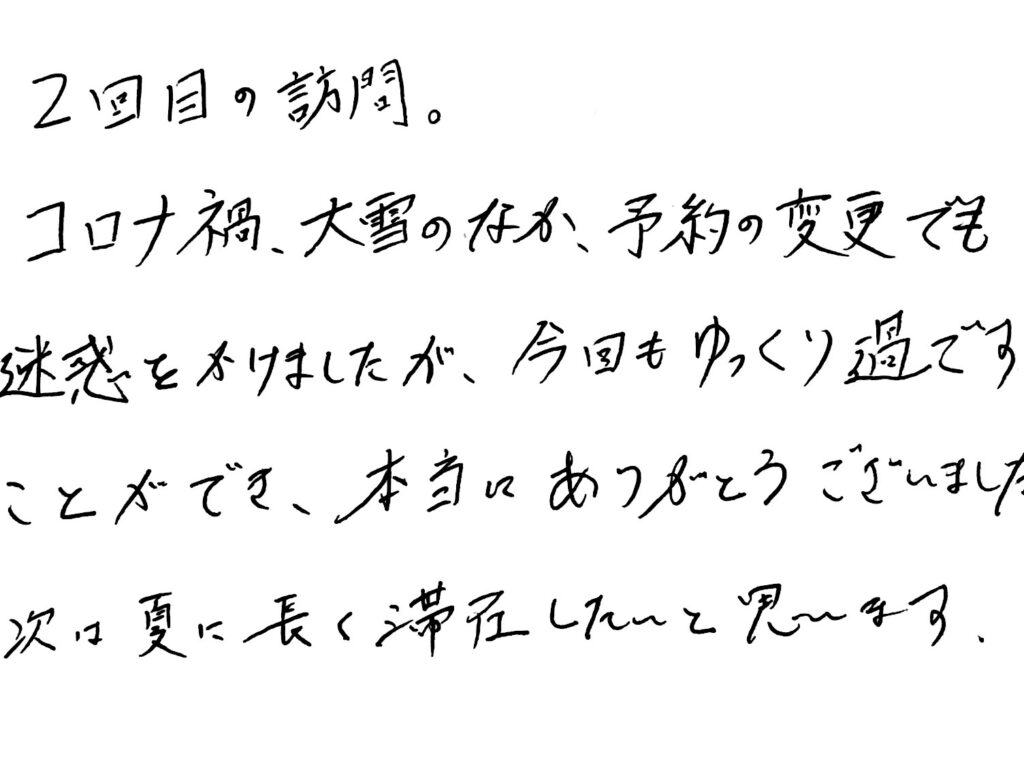 2回目の訪問。
コロナ禍、大雪のなか、予約の変更でも
迷惑をかけましたが、今回もゆっくり過です
ことができ、本当にありがとうございました
次は夏に長く滞在したいと思います.